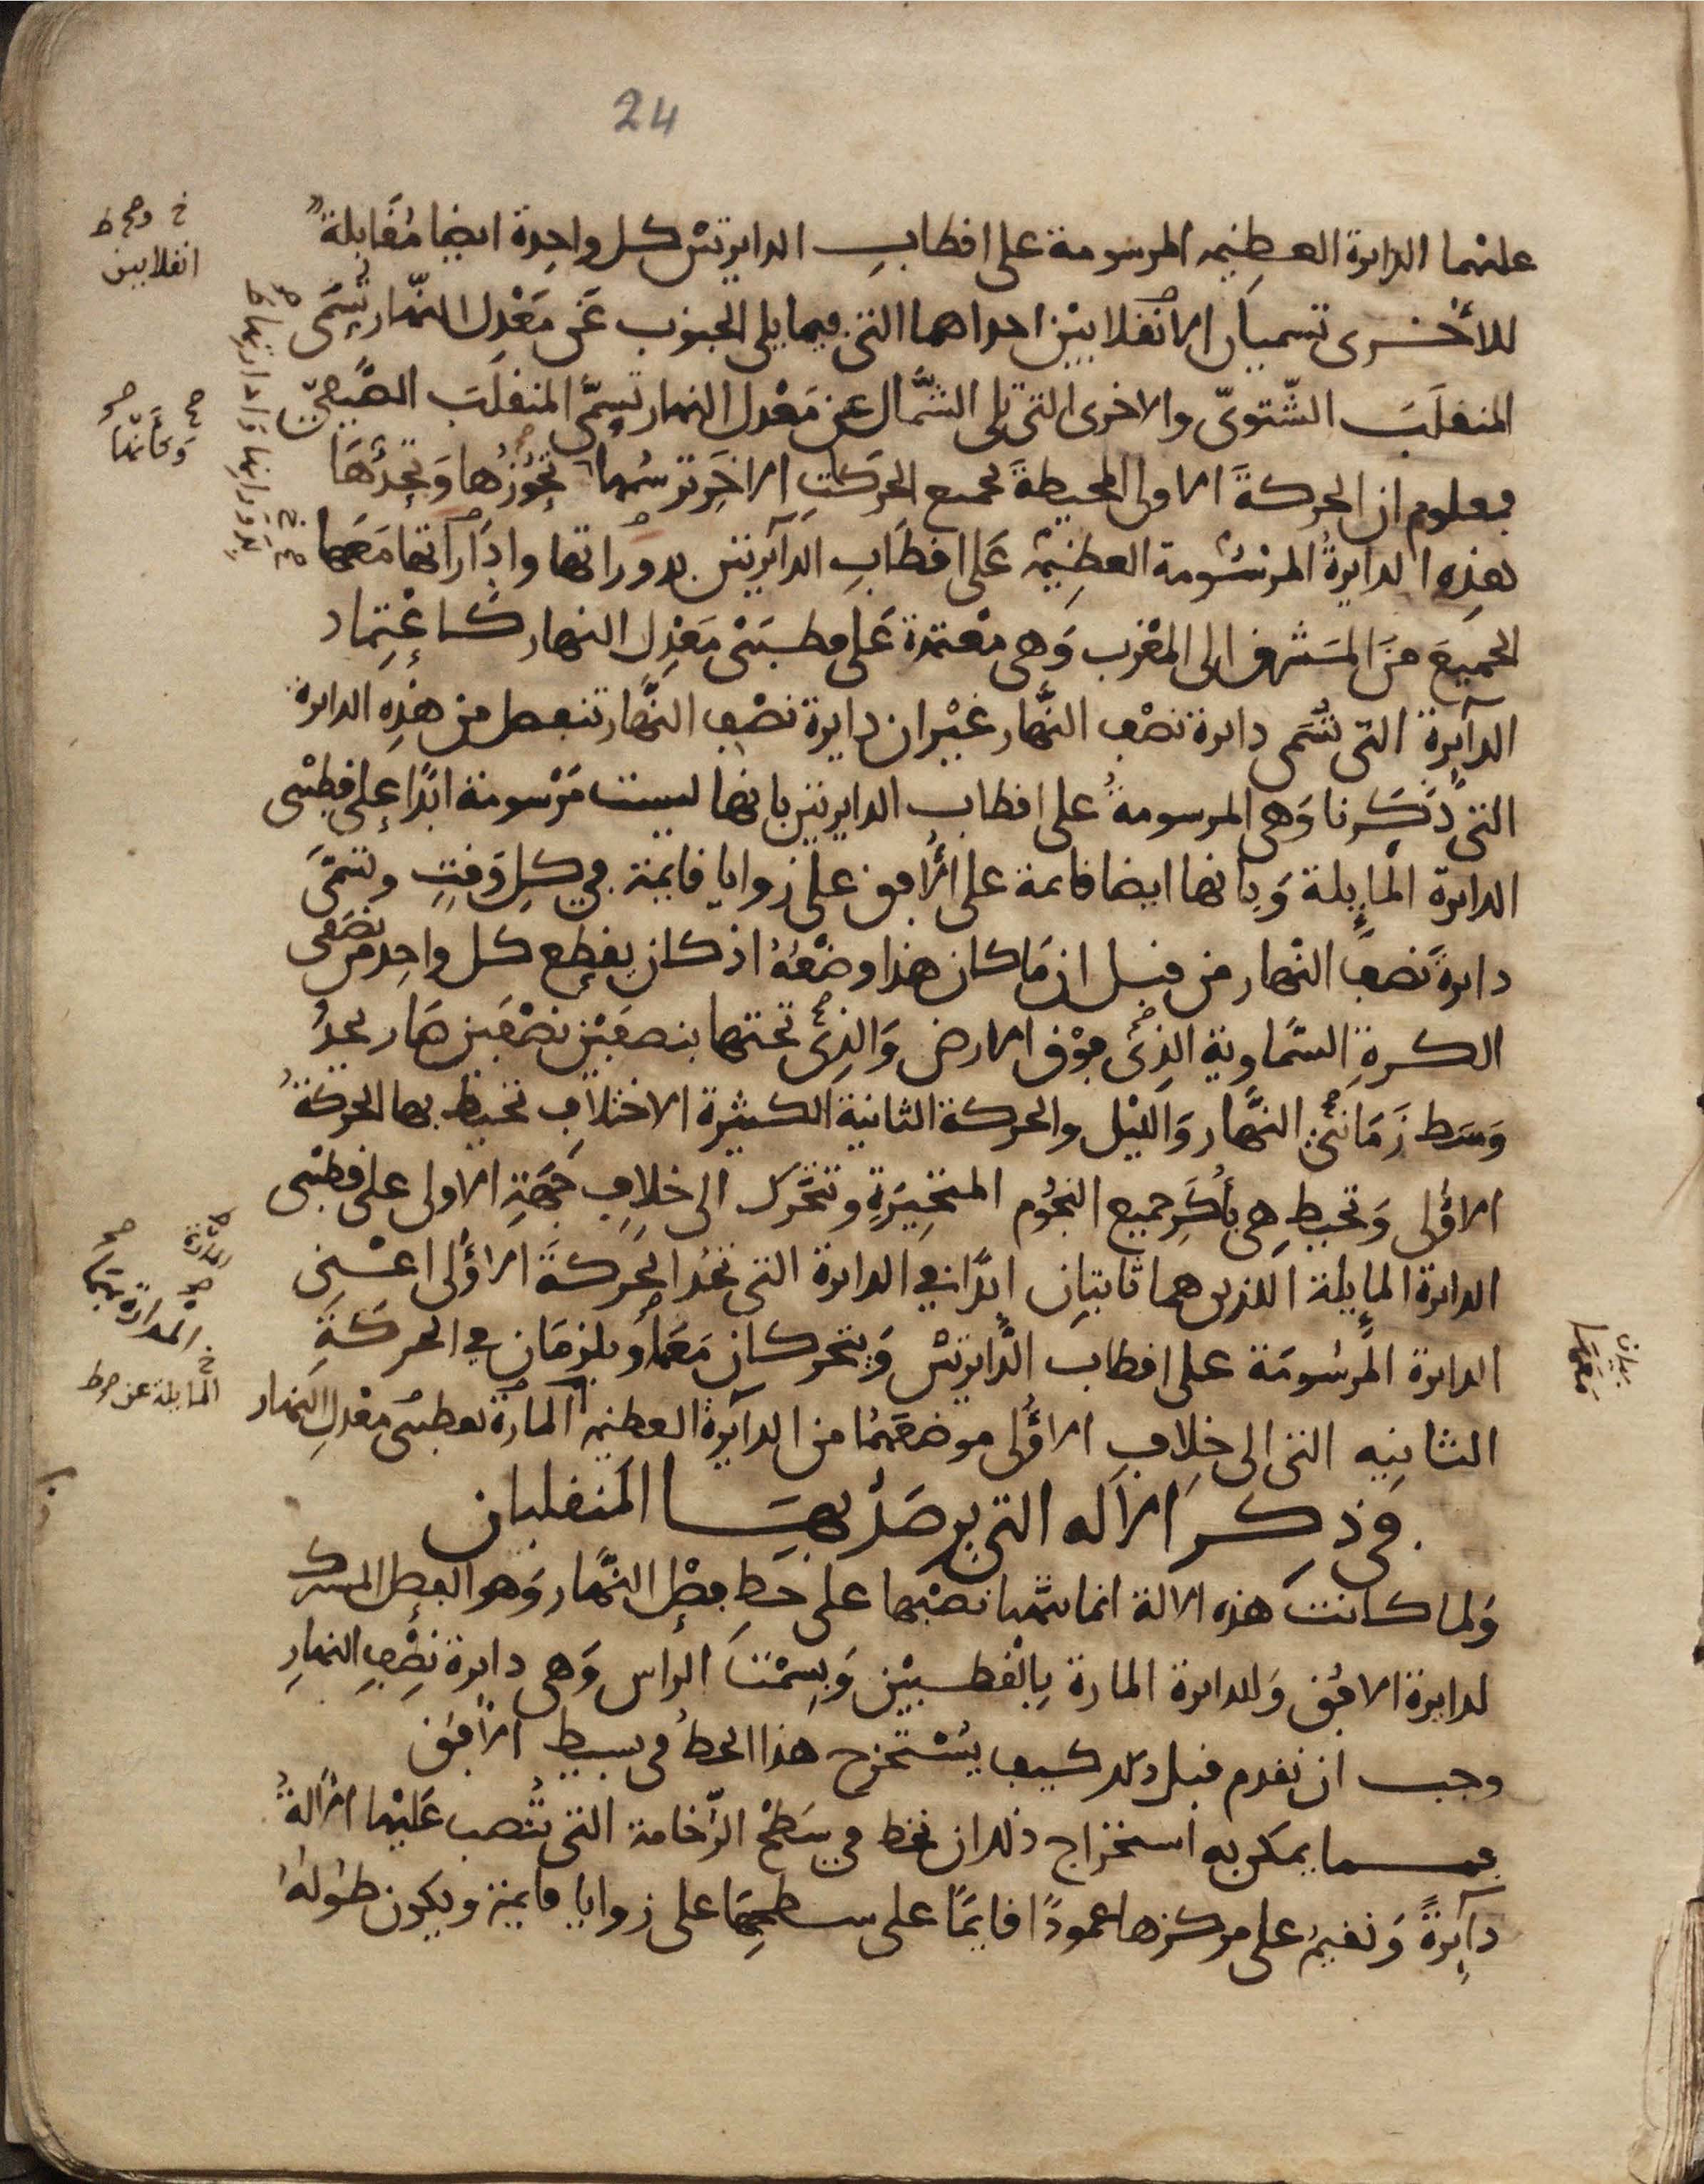 24
عليهما الدايرة العظيمه المرسومة على اقطاب الدايرتين كل واحدة ايضا مقابلة
للأخرى تسميان الانقلابيين احداهما التي فيما يلي الجنوب عن معدل النهار تسمى
المنقلب الشتوي والاخرى التي تلي الشمال عن معدل النهار تسمى المنقلب الصيفي
فمعلوم ان الحركة الاولى المحيطة بجميع الحركات الاخر ترسمها تحوزها وتحدها
بهذه الدايرة المرسومة العظيمة على اقطاب الدايرتين بدوراتها وادارتها معهما
الجميع من المشرق الى المغرب وهي معتمدة على قطبي معدل النهار كاعتماد
الدايرة التي تسمى دايرة نصف النهار غير ان دايرة نصف النهار تنفصل من هذه الدايرة
التي ذكرنا وهي المرسومة على اقطاب الدايرتين بانها ليست مرسومة ابدا على قطبي
الدايرة المايلة وبانها ايضا قايمة على الأفق على زوايا قايمة في كل وقت وتسمى
دايرة نصف النهار من قبل ان ما كان هذا وضعه اذ كان يقطع كل واحد من نصفي
الكرة السماوية الذي فوق الارض والذي تحتها بنصفين نصفين صار يحد
وسط زماني النهار والليل والحركة الثانية الكثيرة الاختلاف تحيط بها الحركة
الاولى وتحيط هي بأكر جميع النجوم المتحيرة وتتحرك الى خلاف جهة الاولى على قطبي
الدايرة المايلة اللذين هما ثابتان ابدا في الدايرة التي تحد الحركة الاولى اعني
الدايرة المرسومة على اقطاب الدايرتين ويتحركان معها ويلزمان في الحركة
الثانيه التي الى خلاف الاولى موضعهما من الدايرة العظيمه المارة بقطبي معدل النهار
في ذكر الاله التي يرصد بها المنقلبان
ولما كانت هذه الالة انما نصبها على خط نصف النهار وهو الفصل المشترك
لدايرة الافق وللدايرة المارة بالقطبين وبسمت الراس وهي دايرة نصف النهار
وجب ان نقدم قبل ذلك كيف يستخرج هذا الخط في بسيط الأفق
فمما يمكن به استخراج ذلك ان نخط في سطح الرخامة التي تنصب عليها الالة
دايرة ونقيم على مركزها عمودا قايما على سطحها على زوايا قايمة ويكون طوله
انقلابيين
وكأنها
المدارة
المايلة عن
معهما